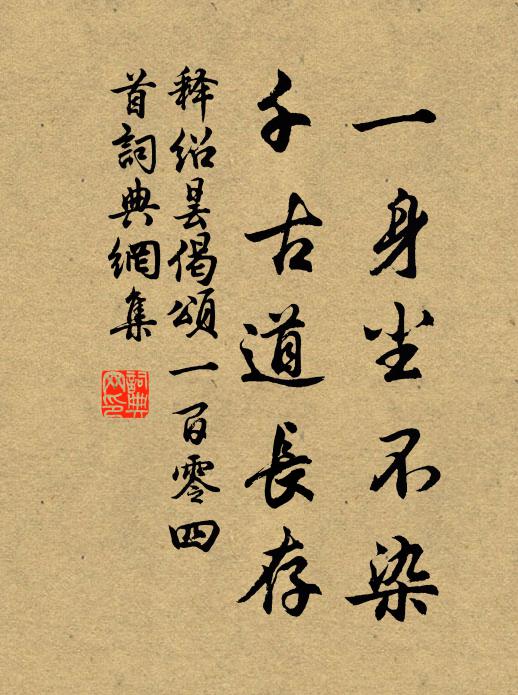 一身尘不染
千古道長存
释绍昙偈頌一百零四
首詞典網集
詞典網印